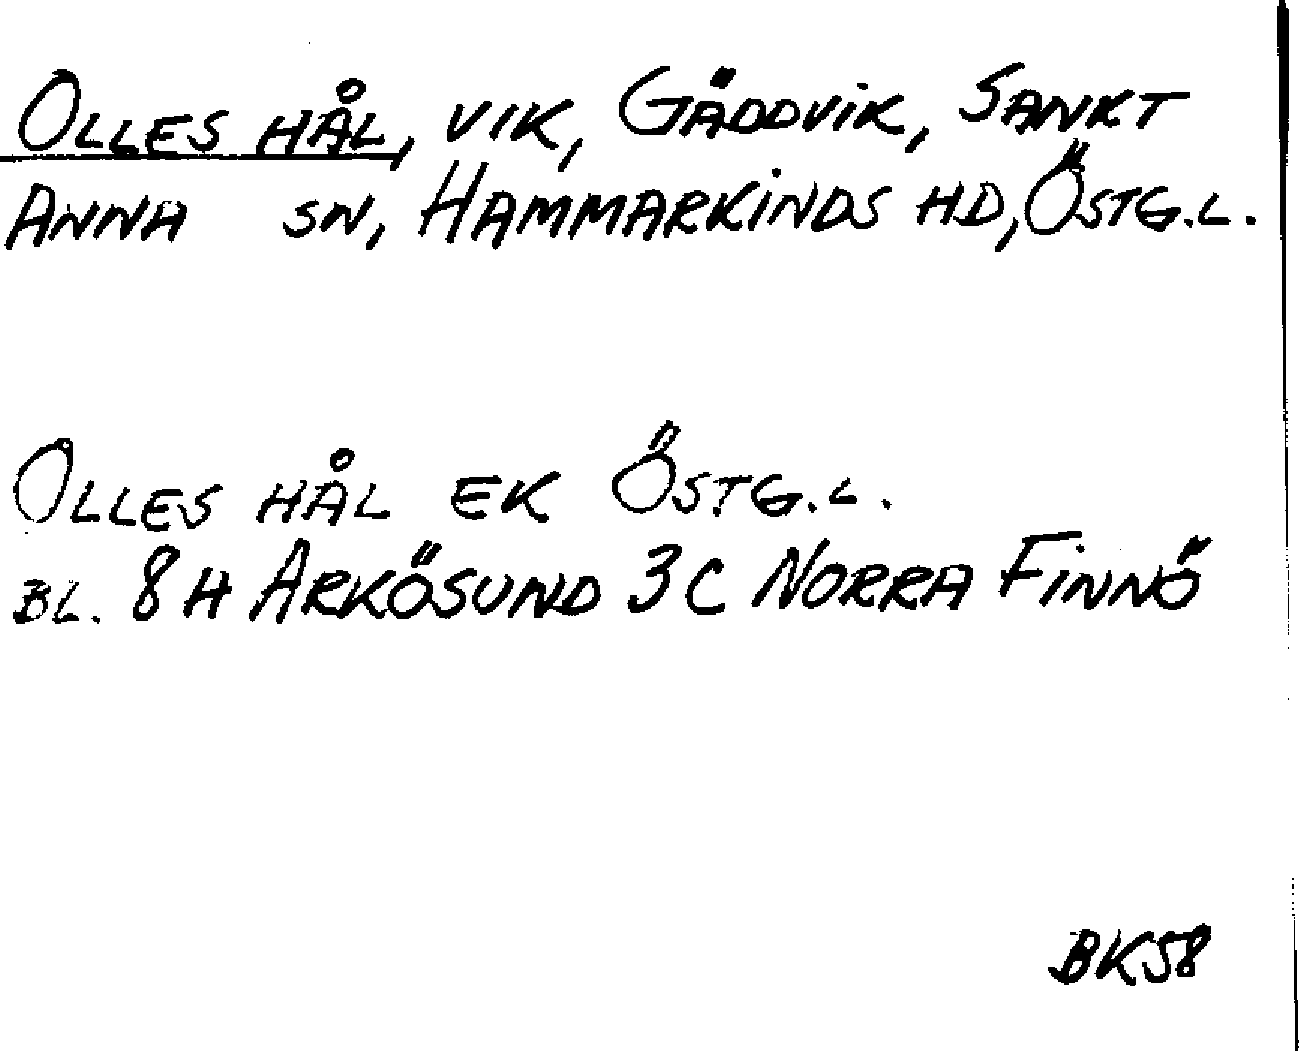 OLLES HÅL, VIK, GÄDDVIK, SANKT
ANNA SN, HAMMARKINDS HD, ÖSTG.L.
OLLES HÅL EK ÖSTG.L.
BL. 8H ARKÖSUND 3C NORRA FINNÖ
BK58